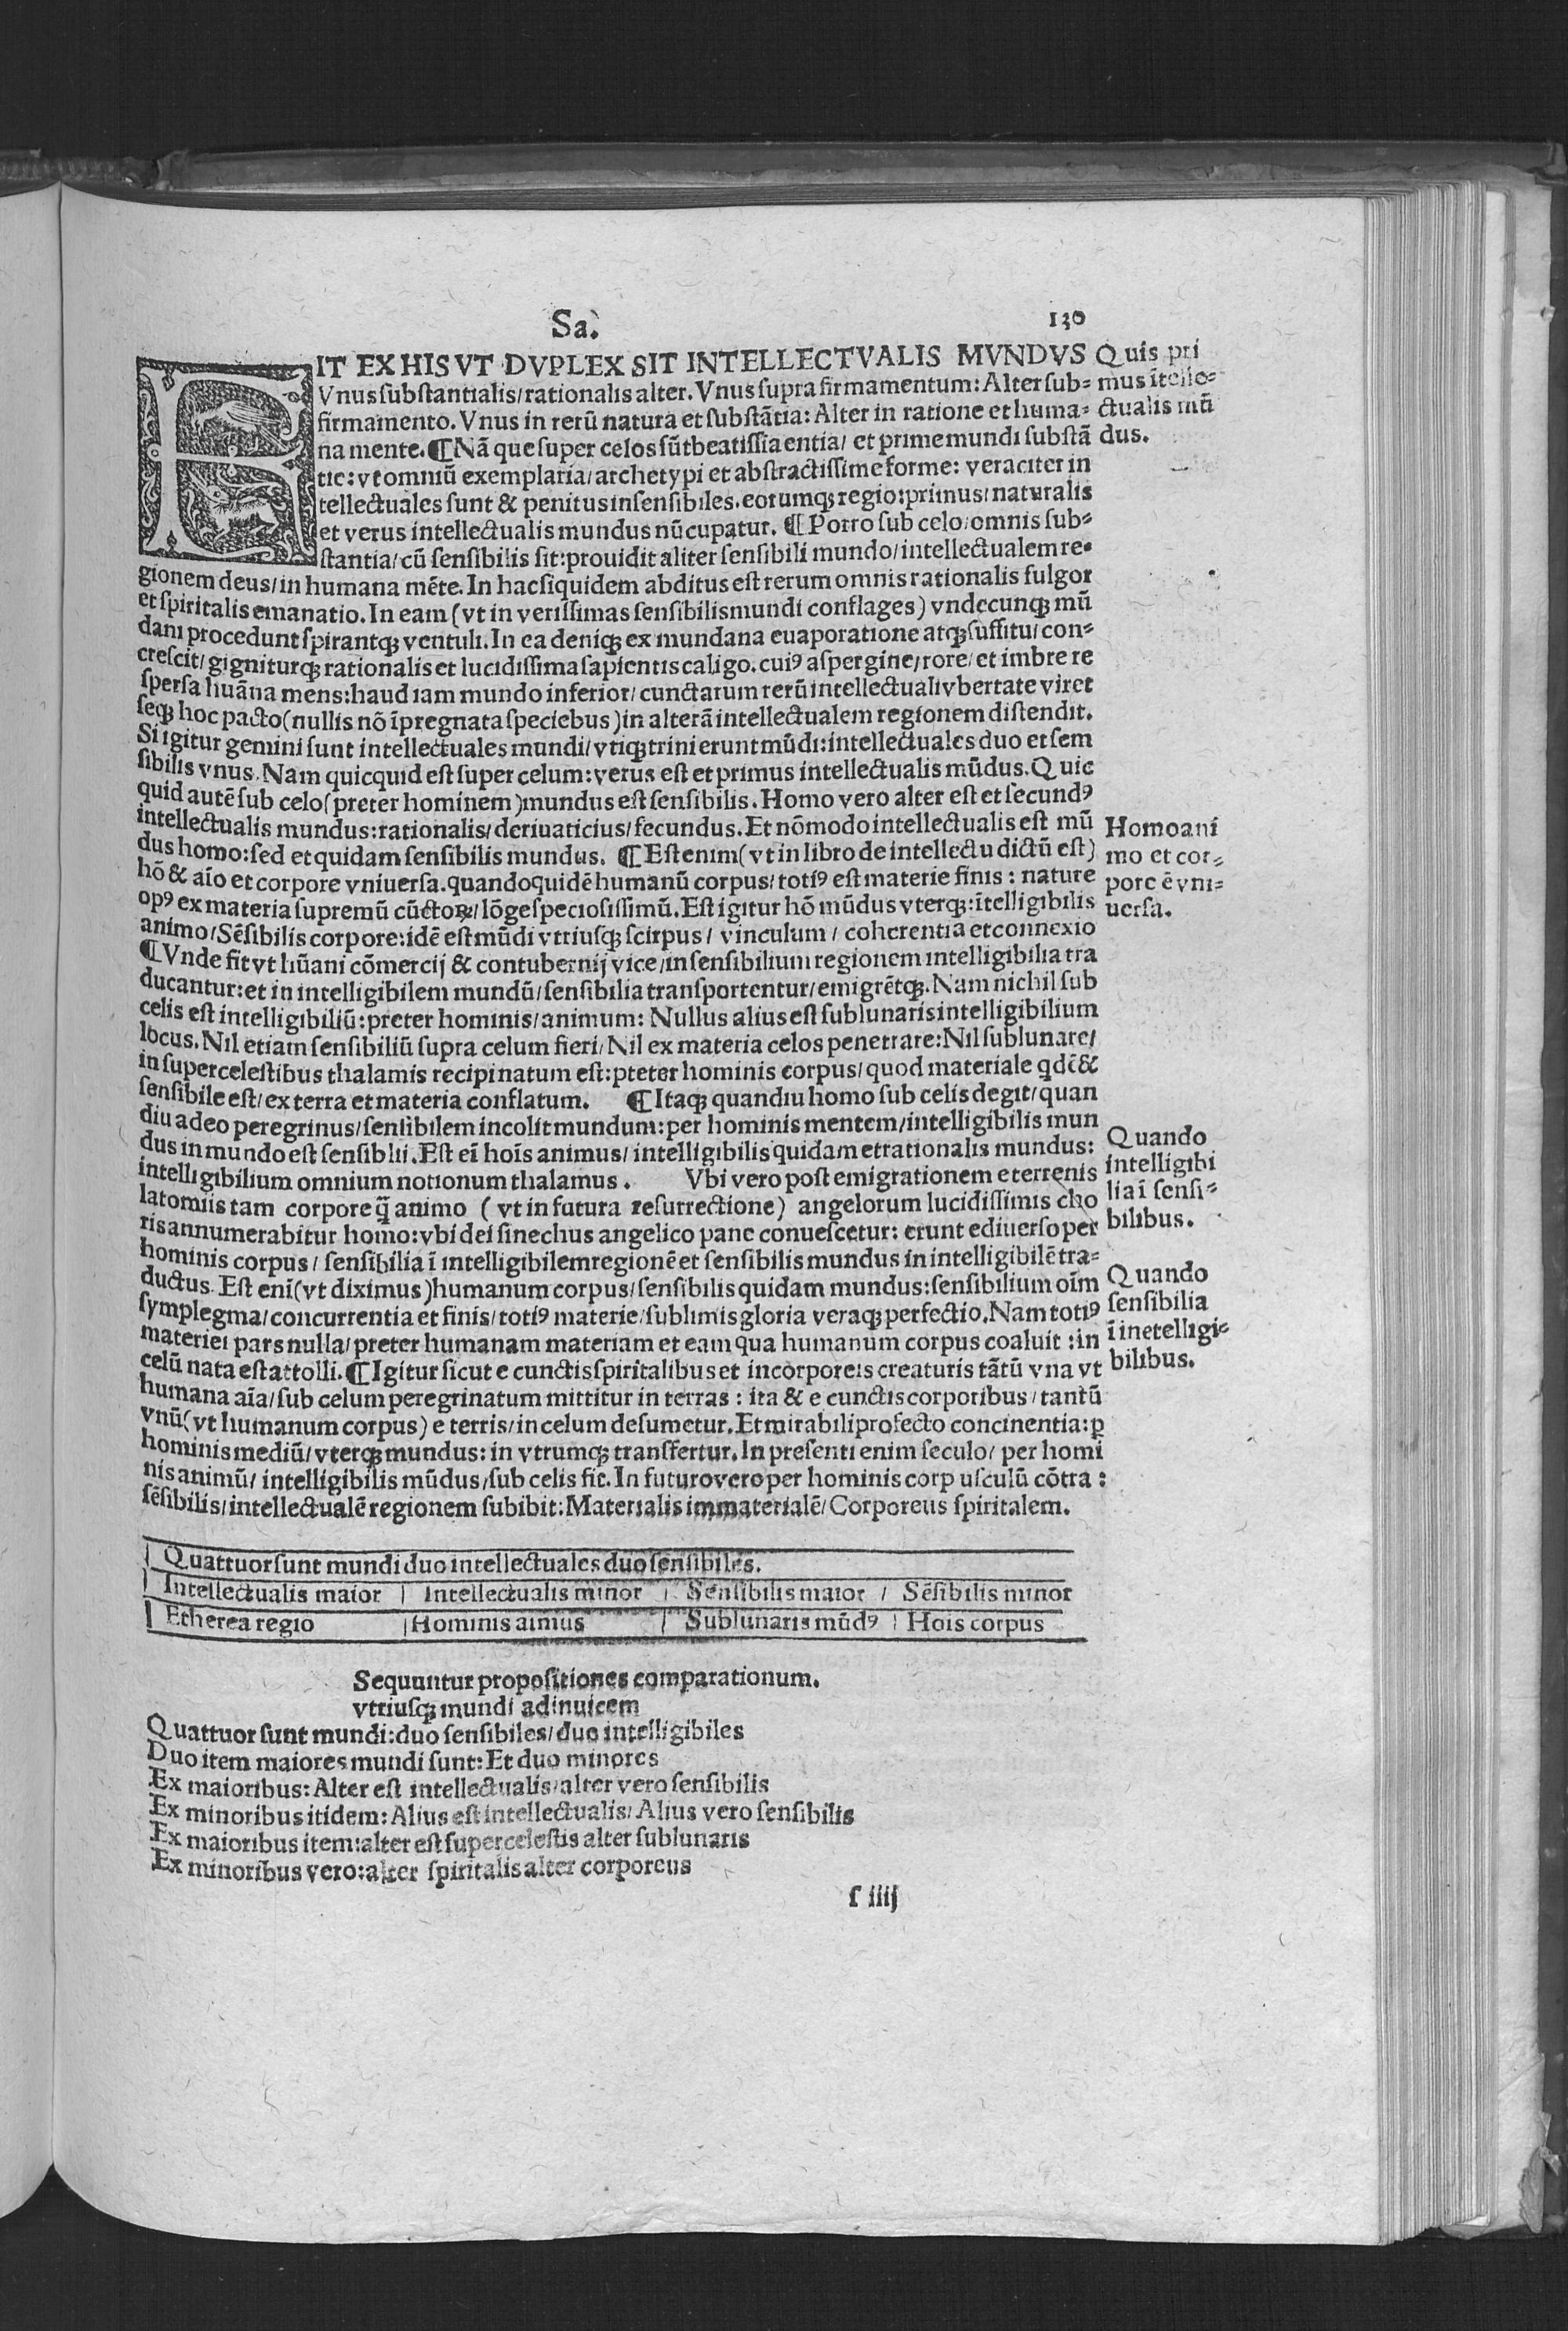 Sa. 130
FIT EX HIS VT DVPLEX SIT INTELLECTVALIS MVNDVS
Vnus substantialis/ rationalis alter. Vnus supra firmamentum: Alter sub-
firmamento. Vnus in rerū natura et substātia: Alter in ratione et huma-
na mente. ¶ Nā que super celos sūt beatissīa entia/ et prime mundi substā
tie: vt omniū exemplaria/ archetypi et abstractissime forme: veraciter in
tellectuales sunt & penitus insensibiles. eorumqꝫ regio: primus/ naturalis
et verus intellectualis mundus nūcupatur. ¶ Porro sub celo/ omnis sub-
stantia/ cū sensibilis sit: prouidit aliter sensibili mundo/ intellectualem re-
gionem deus/ in humana mēte. In hac siquidem abditus est rerum omnis rationalis fulgor
et spiritalis emanatio. In eam (vt in verissimas sensibilis mundi conflages) vndecunqꝫ mū
dani procedunt spirantqꝫ ventuli. In ea deniqꝫ ex mundana euaporatione atqꝫ suffitu/ con-
crescit/ gigniturqꝫ rationalis et lucidissima sapientis caligo. cuiꝰ aspergine/ rore/ et imbre re
spersa huāna mens: haud iam mundo inferior/ cunctarum rerū intellectuali vbertate viret
seqꝫ hoc pacto (nullis nō īpregnata speciebus) in alterā intellectualem regionem distendit.
Si igitur gemini sunt intellectuales mundi/ vtiqꝫ trini erunt mūdi: intellectuales duo et sem
sibilis vnus. Nam quicquid est super celum: verus est et primus intellectualis mūdus. Quic
quid autē sub celo (preter hominem) mundus est sensibilis. Homo vero alter est et secundꝰ
intellectualis mundus: rationalis/ deriuaticius/ fecundus. Et nō modo intellectualis est mū
dus homo: sed et quidam sensibilis mundus. ¶ Est enim (vt in libro de intellectu dictū est)
hō & aīo et corpore vniuersa. quandoquidē humanū corpus/ totiꝰ est materie finis: nature
opꝰ ex materia supremū cūctoꝝ/ lōge speciosissimū. Est igitur hō mūdus vterqꝫ: ītelligibilis
animo/ Sēsibilis corpore: idē est mūdi vtriusqꝫ scirpus/ vinculum/ coherentia et connexio
¶ Vnde fit vt hūani cōmercij & contubernij vice/ in sensibilium regionem intelligibilia tra
ducantur: et in intelligibilem mundū/ sensibilia transportentur/ emigrētqꝫ. Nam nichil sub
celis est intelligibiliū: preter hominis/ animum: Nullus alius est sublunaris intelligibilium
locus. Nil etiam sensibiliū supra celum fieri/ Nil ex materia celos penetrare: Nil sublunare/
in supercelestibus thalamis recipi natum est: pteter hominis corpus/ quod materiale qdē &
sensibile est/ ex terra et materia conflatum. ¶ Itaqꝫ quandiu homo sub celis degit/ quan
diu adeo peregrinus/ sensibilem incolit mundum: per hominis mentem/ intelligibilis mun
dus in mundo est sensiblii. Est eī hoīs animus/ intelligibilis quidam et rationalis mundus:
intelligibilium omnium notionum thalamus. Vbi vero post emigrationem e terrenis
latomiis tam corpore q̄ animo (vt in futura resurrectione) angelorum lucidissimis cho
ris annumerabitur homo: vbi dei sinechus angelico pane conuescetur: erunt ediuerso per
hominis corpus/ sensibilia ī intelligibilem regionē et sensibilis mundus in intelligibilē tra-
ductus. Est enī (vt diximus) humanum corpus/ sensibilis quidam mundus: sensibilium oīm
symplegma/ concurrentia et finis/ totiꝰ materie/ sublimis gloria veraqꝫ perfectio. Nam totiꝰ
materiei pars nulla/ preter humanam materiam et eam qua humanum corpus coaluit: in
celū nata est attolli. ¶ Igitur sicut e cunctis spiritalibus et incorporeis creaturis tātū vna vt
humana aīa/ sub celum peregrinatum mittitur in terras: ita & e cunctis corporibus/ tantū
vnū (vt humanum corpus) e terris/ in celum desumetur. Et mirabili profecto concinentia: ꝑ
hominis mediū/ vterqꝫ mundus: in vtrumqꝫ transfertur. In presenti enim seculo/ per homi
nis animū/ intelligibilis mūdus/ sub celis fit. In futuro vero per hominis corp usculū cōtra:
sēsibilis/ intellectualē regionem subibit: Materialis immaterialē/ Corporeus spiritalem.
Quis pri
mus ītelle-
ctualis mū
dus.
Homo ani
mo et cor-
pore ē vni-
uersa.
Quando
intelligibi
lia ī sensi-
bilibus.
Quando
sensibilia
ī inetelligi-
bilibus.
Quattuor sunt mundi duo intellectuales duo sensibiles.
Intellectualis maior | Intellectualis minor | Sensibilis maior | Sēsibilis minor
Etherea regio | Hominis aimus | Sublunaris mūdꝰ | Hois corpus
Sequuntur propositiones comparationum.
vtriusqꝫ mundi adinuicem
Quattuor sunt mundi: duo sensibiles/ duo intelligibiles
Duo item maiores mundi sunt: Et duo minores
Ex maioribus: Alter est intellectualis/ alter vero sensibilis
Ex minoribus itidem: Alius est intellectualis/ Alius vero sensibilis
Ex maioribus item: alter est supercelestis alter sublunaris
Ex minoribus vero: alter spiritalis alter corporeus
ſ iiij